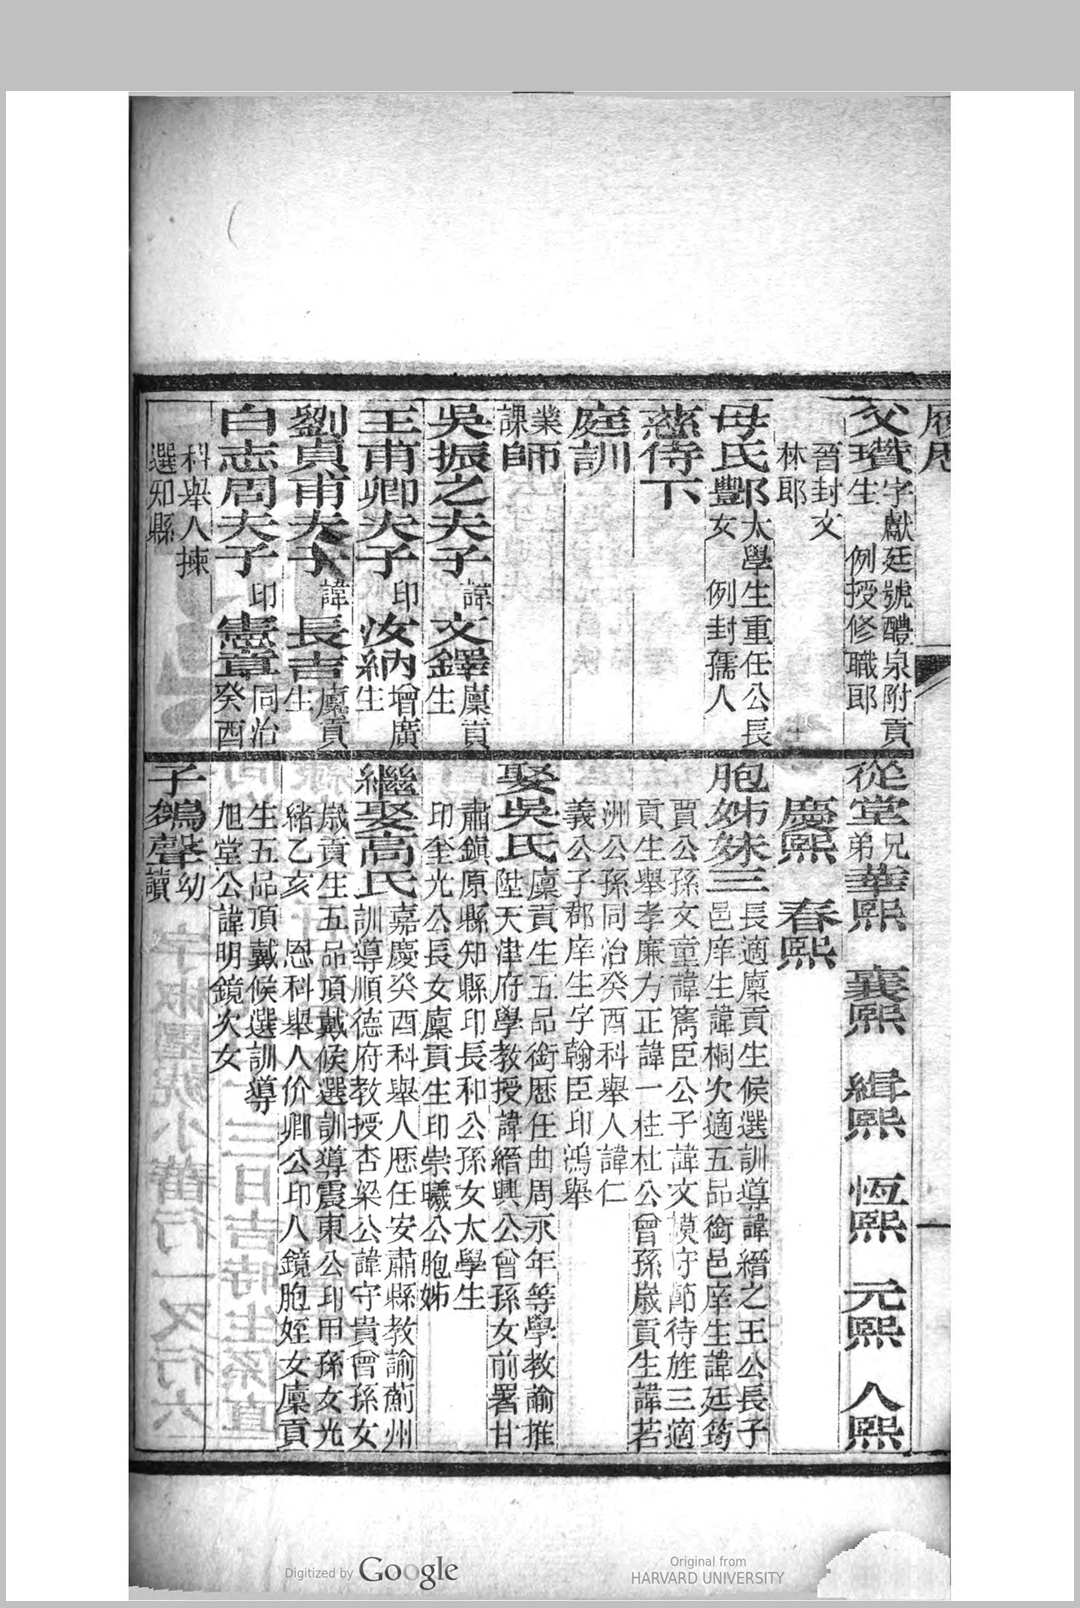 履歷
父瓚生字獻廷號醴泉附貢
例授修職郎
晉封文
林郎
母氏邢太學生重任公長
豐女例封孺人
慈侍下
庭訓
業師
課師
吳振之夫子諱文鐸廩貢
生
王甫卿夫子印汝納增廣
生
劉眞甫夫子諱長吉廩貢
生
白志周夫子印憲章同治
癸酉
科舉人揀
選知縣
從堂兄弟華熙 襄熙 緝熙 恆熙 元熙 八熙
慶熙 春熙
胞姊妹三長適廩貢生候選訓導諱縉之王公長子
邑庠生諱桐次適五品銜邑庠生諱廷筠
賈公孫文童諱寯臣公子諱文謨守節待旌三適
貢生舉孝廉方正諱一柱杜公曾孫歲貢生諱若
洲公孫同治癸酉科舉人諱仁
義公子郡庠生字翰臣印鴻舉
娶吳氏廩貢生五品銜歷任曲周永年等學教諭推
陞天津府學教授諱縉興公曾孫女前署甘
肅鎭原縣知縣印長和公孫女太學生
印奎光公長女廩貢生印崇曦公胞姊
繼娶高氏嘉慶癸酉科舉人歷任安肅縣教諭薊州
訓導順德府教授杏梁公諱守貴曾孫女
歲貢生五品頂戴候選訓導震東公印甲孫女光
緒乙亥恩科舉人价卿公印人鏡胞姪女廩貢
生五品頂戴候選訓導
旭堂公諱明鏡次女
子鶴聲幼
讀
Digitized by Google
Original from
HARVARD UNIVERSITY